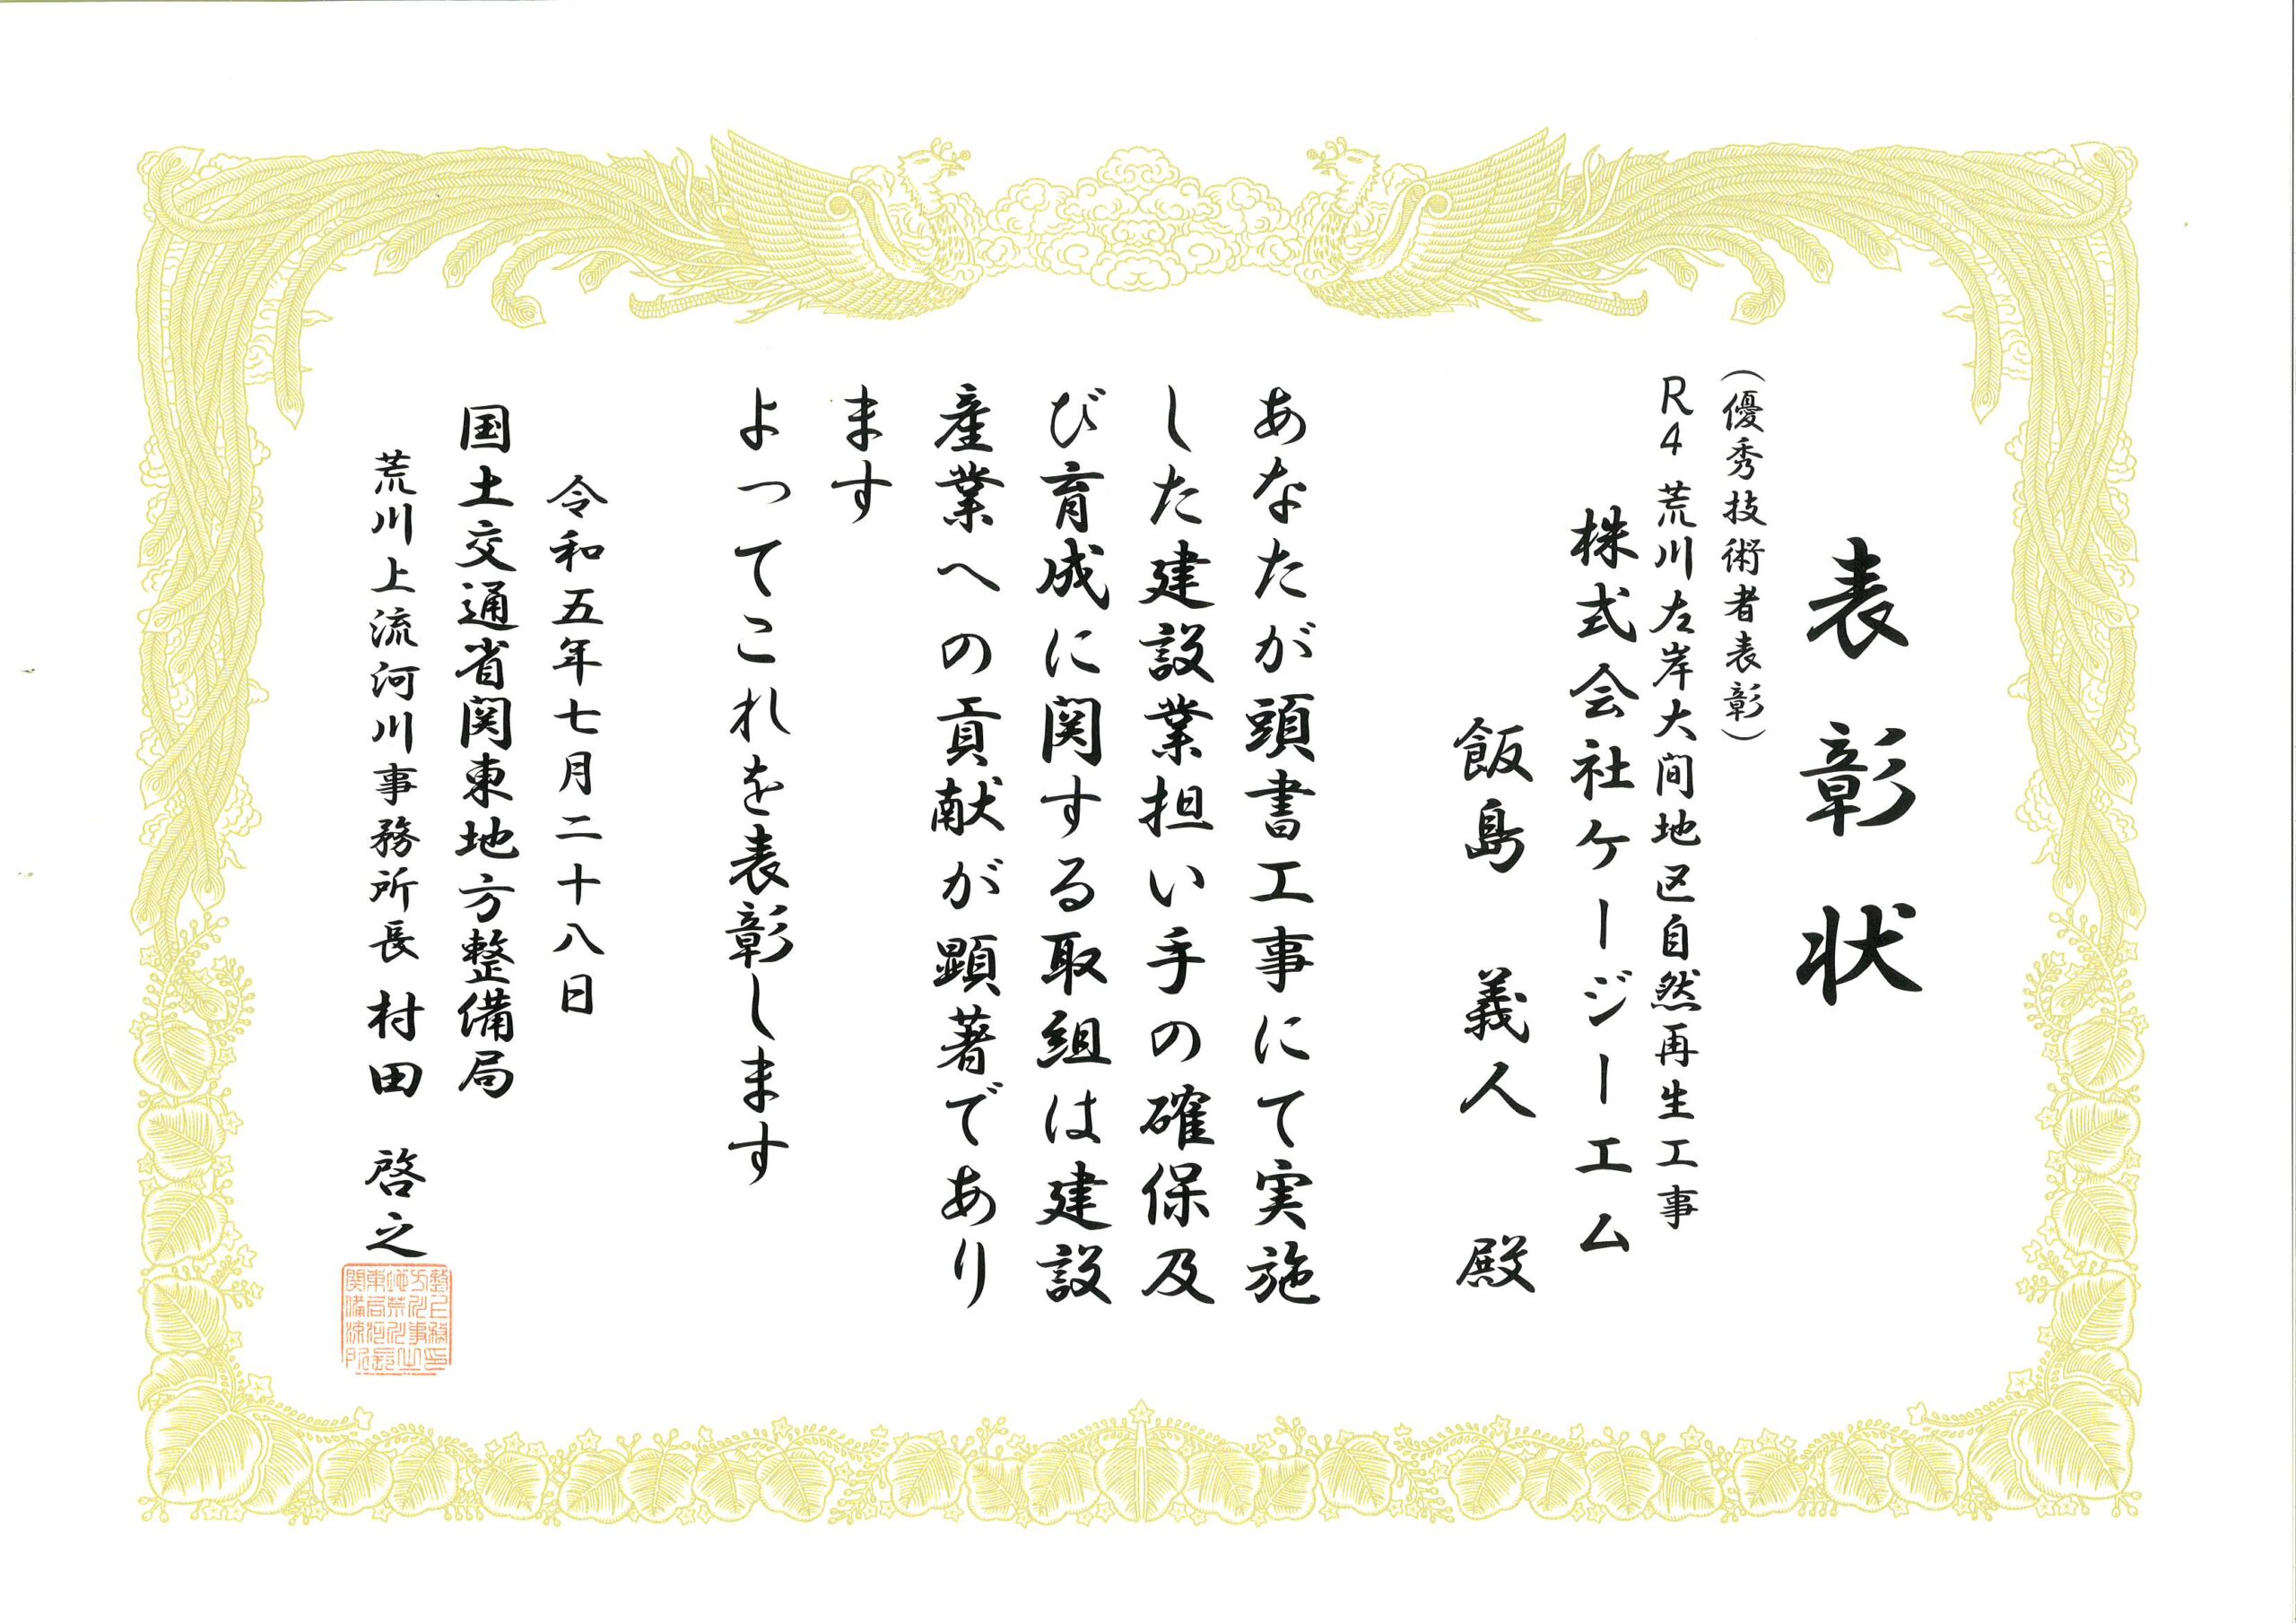 表彰状
(優秀技術者表彰)
R4荒川左岸大間地区自然再生工事
株式会社ケージーエム
飯島 義人 殿
あなたが頭書工事にて実施
した建設業担い手の確保及
び育成に関する取組は建設
産業への貢献が顕著であり
ます
よってこれを表彰します
令和五年七月二十八日
国土交通省関東地方整備局
荒川上流河川事務所長 村田 啓之